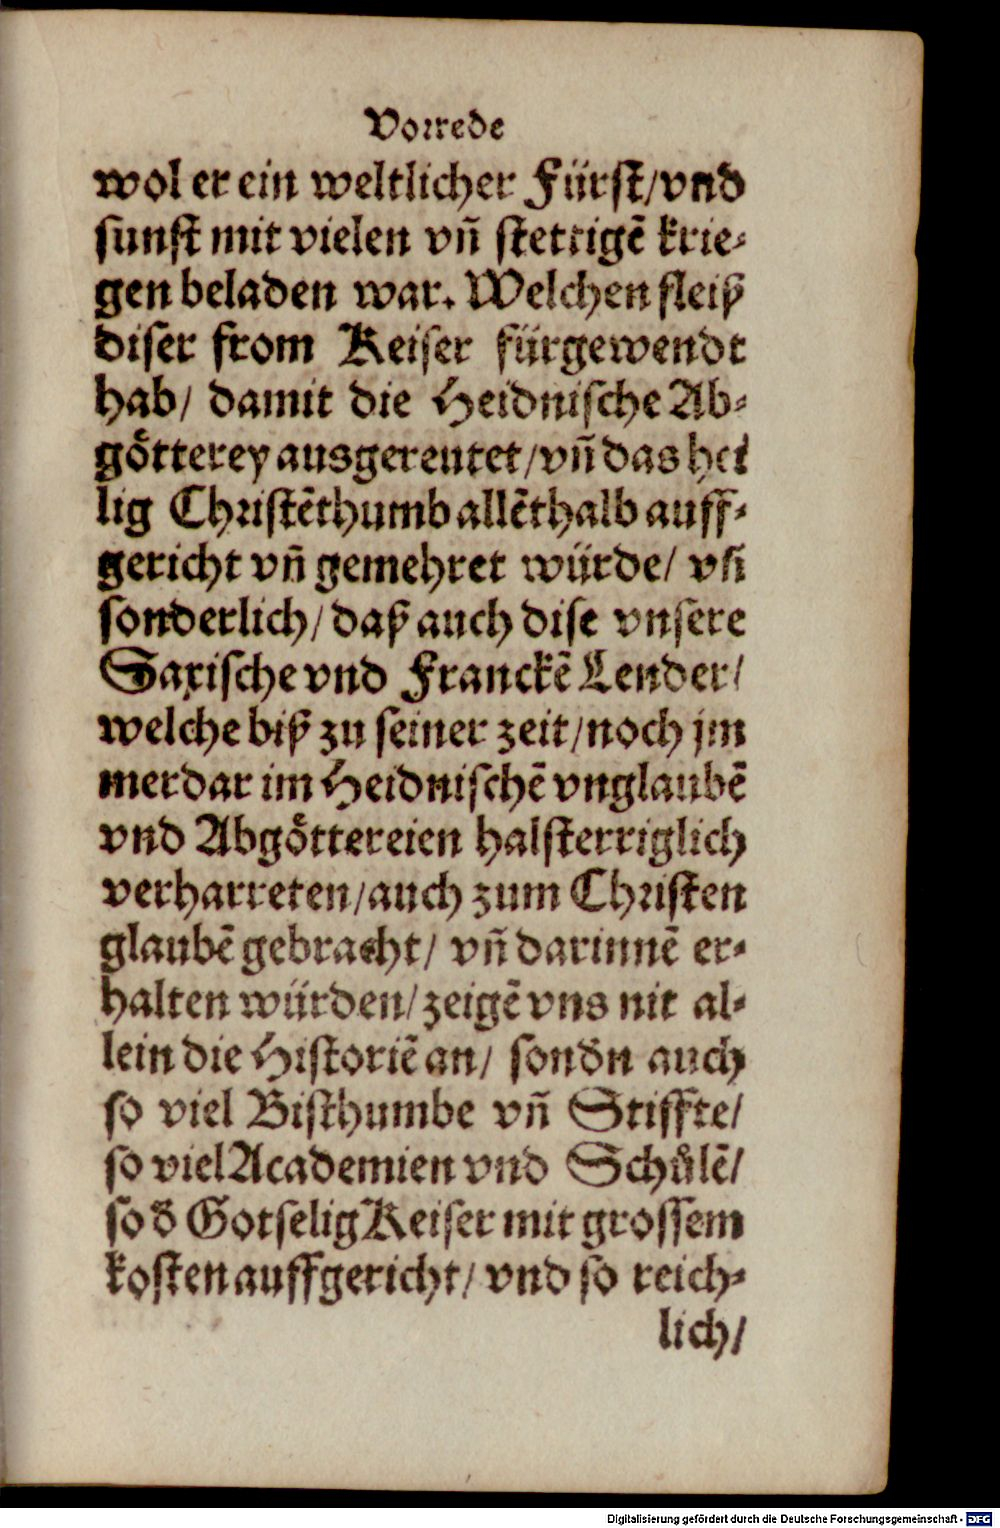 Vorrede
wol er ein weltlicher Fürst/vnd
sunst mit vielen vñ stettigẽ krie-
gen beladen war. Welchen fleiß
diser from Keiser fürgewendt
hab/ damit die Heidnische Ab-
götterey ausgereutet/vñ das hei
lig Christẽthumb allẽthalb auff-
gericht vñ gemehret würde/ vñ
sonderlich/daß auch dise vnsere
Saxische vnd Franckẽ Lender/
welche biß zu seiner zeit/noch jm
merdar im Heidnischẽ vnglaubẽ
vnd Abgöttereien halsterriglich
verharreten/auch zum Christen
glaubẽ gebracht/ vñ darinnẽ er-
halten würden/zeigẽ vns nit al-
lein die Historiẽ an/ sondn̄ auch
so viel Bisthumbe vñ Stiffte/
so viel Academien vnd Schůlẽ/
so d̄ Gotselig Keiser mit grossem
kosten auffgericht/ vnd so reich-
lich/
Digitalisierung gefördert durch die Deutsche Forschungsgemeinschaft - DFG